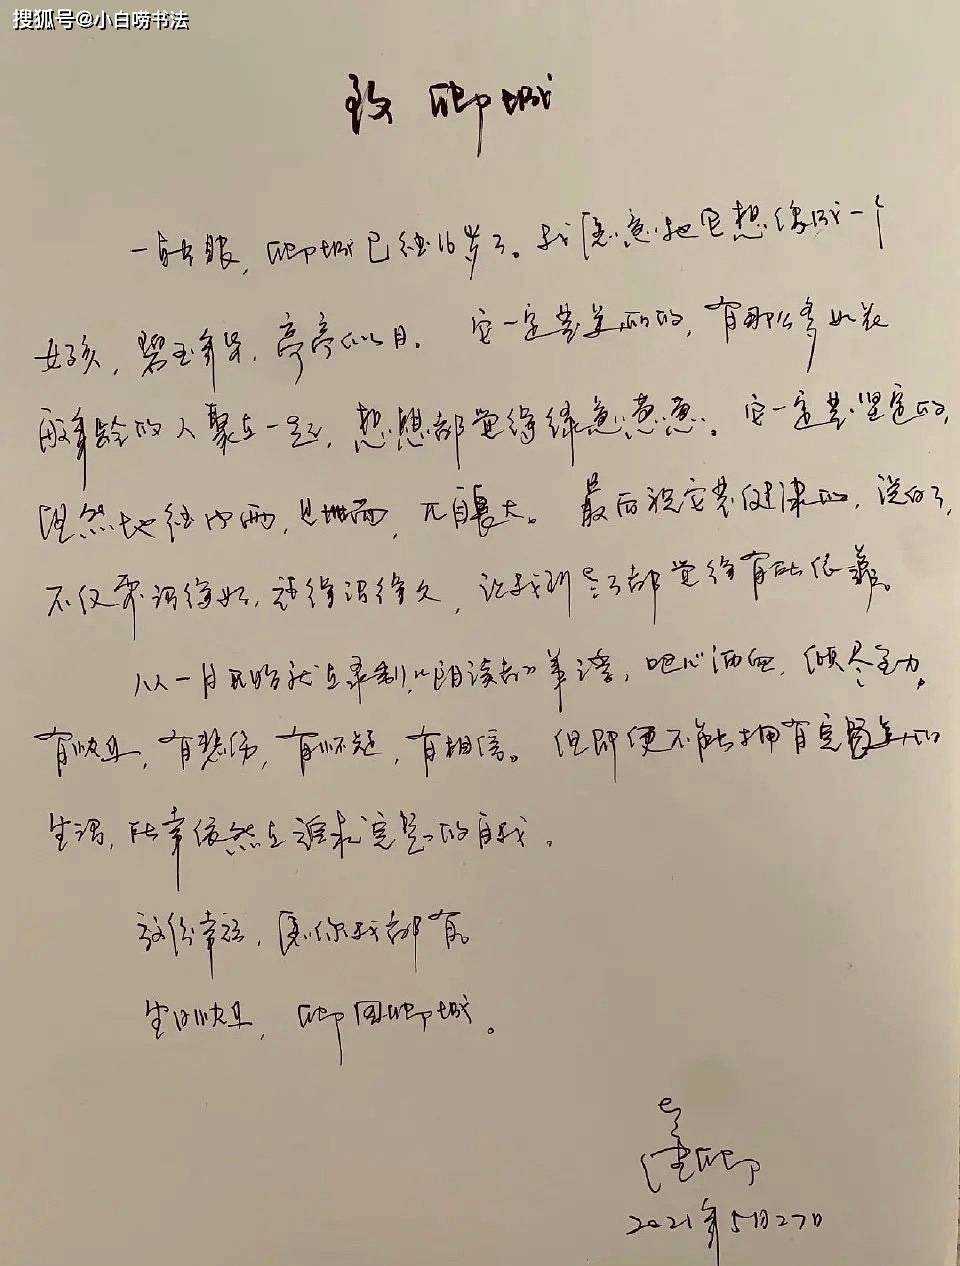 搜狐号@小白唠书法
致 卿城
一转眼，卿城已经16岁了。我愿意把它想像成一个
女孩，碧玉年华，亭亭如月。它一定要美丽的，有那么多如花
般年龄的人聚在一起，想想都觉得绿意葱葱。它一定要坚定的，
坦然地经风雨，见世面，不自大。最后祝它要健康的，说好了，
不仅要活得好，还得活得久，让我们三都觉得有此依靠。
从一月开始就在录制《朗读者》第三季，呕心沥血，倾尽全力，
有快乐，有悲伤，有怀疑，有相信。但即便不能拥有完整的
生活，此辈依然在追求完整的自我。
这份幸福，愿你我都有。
生日快乐，卿国卿城。
董卿
2021年5月27日